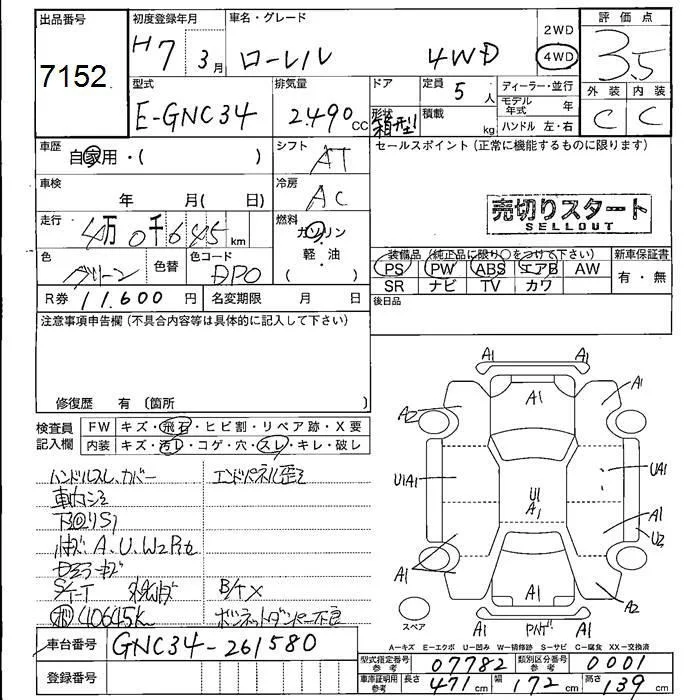 出品番号
7152
初度登録年月
H7 3月
車名・グレード
ローレル 4WD
2WD
4WD
評価点
3.5
外装 内装
C C
型式
E-GNC34
排気量
2.490 CC
ドア
形状
箱型
定員
5人
積載
kg
ディーラー・並行
モデル年式 年
ハンドル 左・右
車歴
自家用・( )
シフト
AT
セールスポイント(正常に機能するものに限ります)
売切りスタート
SELLOUT
車検
年 月( 日)
冷房
AC
走行
4万0千645km
燃料
ガソリン・軽・油
( )
色
グリーン
色替
色コード
DP0
装備品(純正品に限り○をつけて下さい)
PS PW ABS エアB AW
SR ナビ TV カワ
新車保証書
有・無
R券 11.600円
名変期限 月 日
後日品
注意事項申告欄(不具合内容等は具体的に記入して下さい)
修復歴 有 〔箇所 〕
検査員記入欄
FW キズ・飛石・ヒビ割・リペア跡・X要
内装 キズ・汚レ・コゲ・穴・スレ・キレ・破レ
ハンドルスレ、カバー
エンドパネル歪
S/T-T
B/Tx
ボ 40645k
ボンネットダンパー不良
A1 A1
A1
A1
A2
U1A1
U1
A1
UA1
A1
U2
A1
A1
A2
スペア
A1
A1
A-キズ E-エクボ U-凹み W-補修跡 S-サビ C-腐食 XX-交換済
車台番号
GNC34-261580
登録番号
型式指定番号参考
07782
類別区分番号参考
0001
車庫証明用参考
長さ 471cm
幅 172cm
高さ 139cm